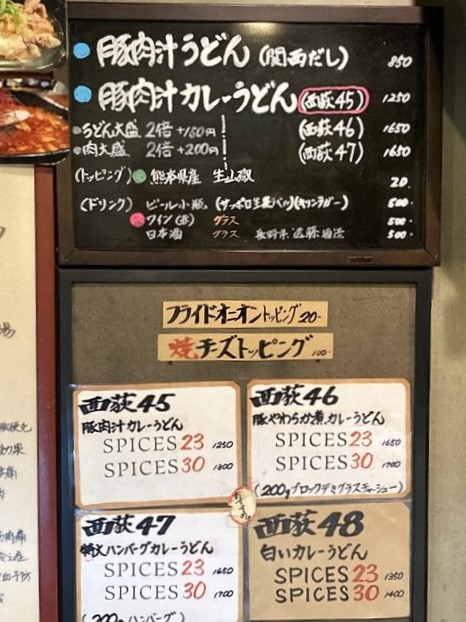 豚肉汁うどん (関西だし) 850
豚肉汁カレーうどん (西荻45) 1250
うどん大盛 2倍 +150円 (西荻46) 1650
肉大盛 2倍 +200円 (西荻47) 1650
(トッピング) 熊本県産 生山椒 20.
(ドリンク) ビール小瓶 (サッポロ生黒ラベル)(キリンラガー) 500-
ワイン(赤) グラス 500-
日本酒 グラス 長野県 遠藤酒造 500-
フライドオニオントッピング 20-
焼チーズトッピング 100-
西荻45
豚肉汁カレーうどん
SPICES 23 1250
SPICES 30 1300
西荻46
豚やわらか煮カレーうどん
SPICES 23 1650
SPICES 30 1700
(200gブロックデミグラスティシュー)
おすすめ
西荻47
特大ハンバーグカレーうどん
SPICES 23 1650
SPICES 30 1700
(200gハンバーグ)
西荻48
白いカレーうどん
SPICES 23 1350
SPICES 30 1400